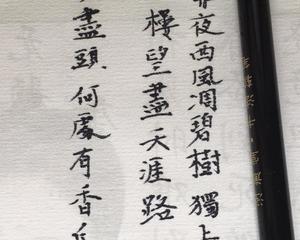 昨夜西風凋碧樹獨上
樓望盡天涯路
盡頭何處有香